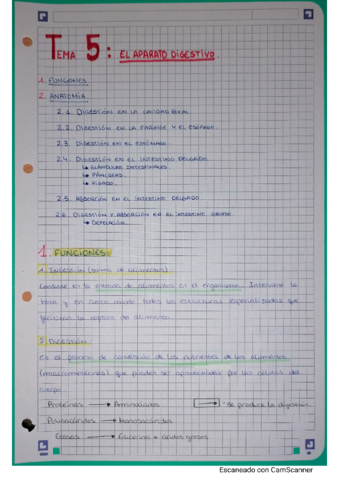 TEMA 5: EL APARATO DIGESTIVO.
1. FUNCIONES
2. ANATOMÍA
2.1. DIGESTIÓN EN LA CAVIDAD BUCAL
2.2. DIGESTIÓN EN LA FARINGE Y EL ESÓFAGO
2.3. DIGESTIÓN EN EL ESTÓMAGO
2.4. DIGESTIÓN EN EL INTESTINO DELGADO
↳ GLÁNDULAS INTESTINALES
↳ PÁNCREAS
↳ HÍGADO
2.5. ABSORCIÓN EN EL INTESTINO DELGADO
2.6. DIGESTIÓN Y ABSORCIÓN EN EL INTESTINO GRUESO
↳ DEFECACIÓN
1. FUNCIONES
1. INGESTIÓN (toma de alimentos)
Consiste en la entrada de alimentos en el organismo. Interviene la
boca y en cierto modo todas las estructuras especializadas que
facilitan la captura de alimentos.
2. DIGESTIÓN
Es el proceso de conversión de los nutrientes de los alimentos
(macromoléculas) que pueden ser aprovechadas por las células del
cuerpo.
Proteínas → Aminoácidos
→ "Se produce la digestión
Polisacáridos → Monosacáridos
Grasas → Glicerina + ácidos grasos
Escaneado con CamScanner